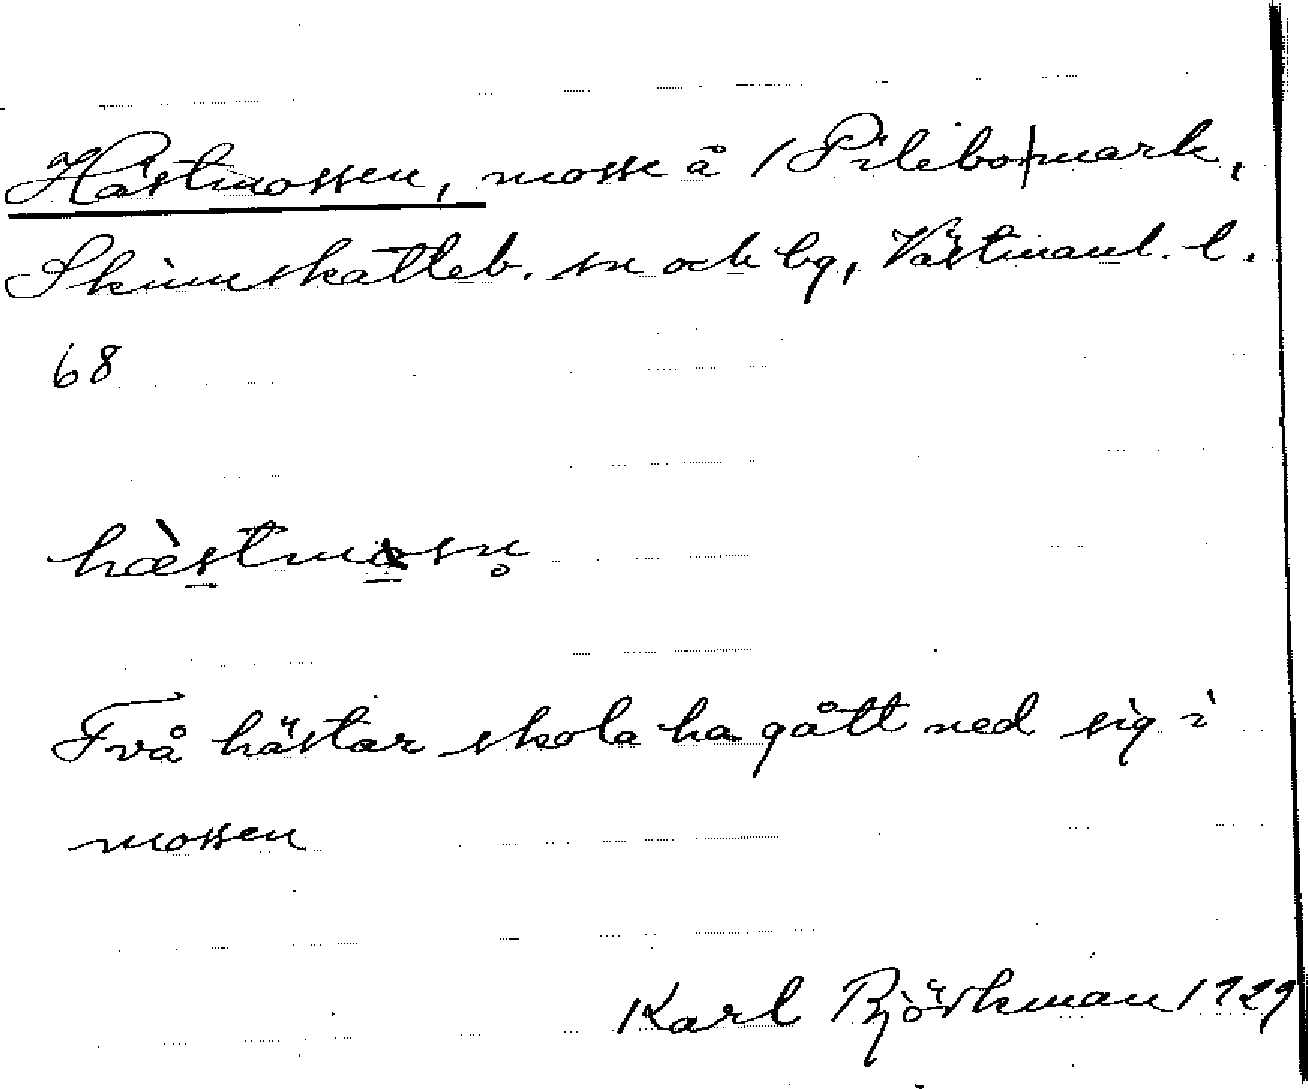 Hästmossen, mosse å Pilebo mark,
Skinnskatteb. sn och bg, Västmanl. l.
68
hæ̀stmosn̥
Två hästar skola ha gått ned sig i
mossen
Karl Björkman 1929